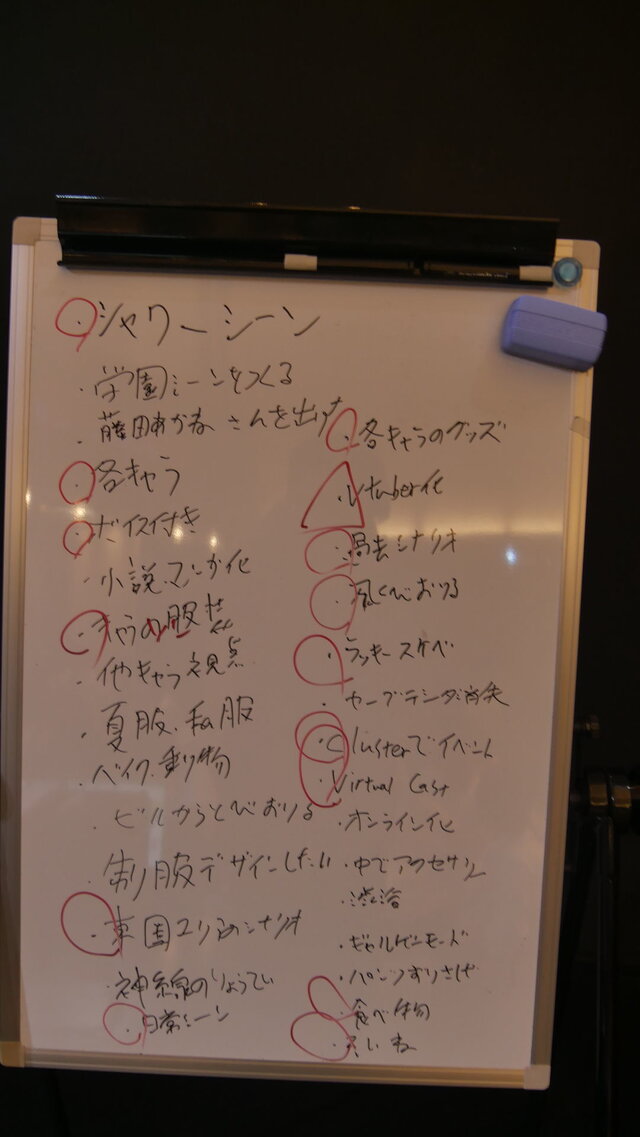 ・シャワーシーン
・学園シーンをつくる
・藤田あかねさんを出す
・各キャラ
・ボイス付き
・小説、マンガ化
・キャラの服装
・他キャラ視点
・夏服、私服
・バイク、乗り物
・ビルからとびおりる
制服デザインしたい
・東園ユリ
神
・日常シーン
・各キャラのグッズ
・Vtuber化
・過去シナリオ
・おりる
・ラッキースケベ
・セーブデータ消失
・Clusterでイベント
・Virtual Cast
・オンライン化
・中でアクセサリ
・渋谷
・ギャルゲーモード
・パンツずりさげ
・食べ物
・そいね